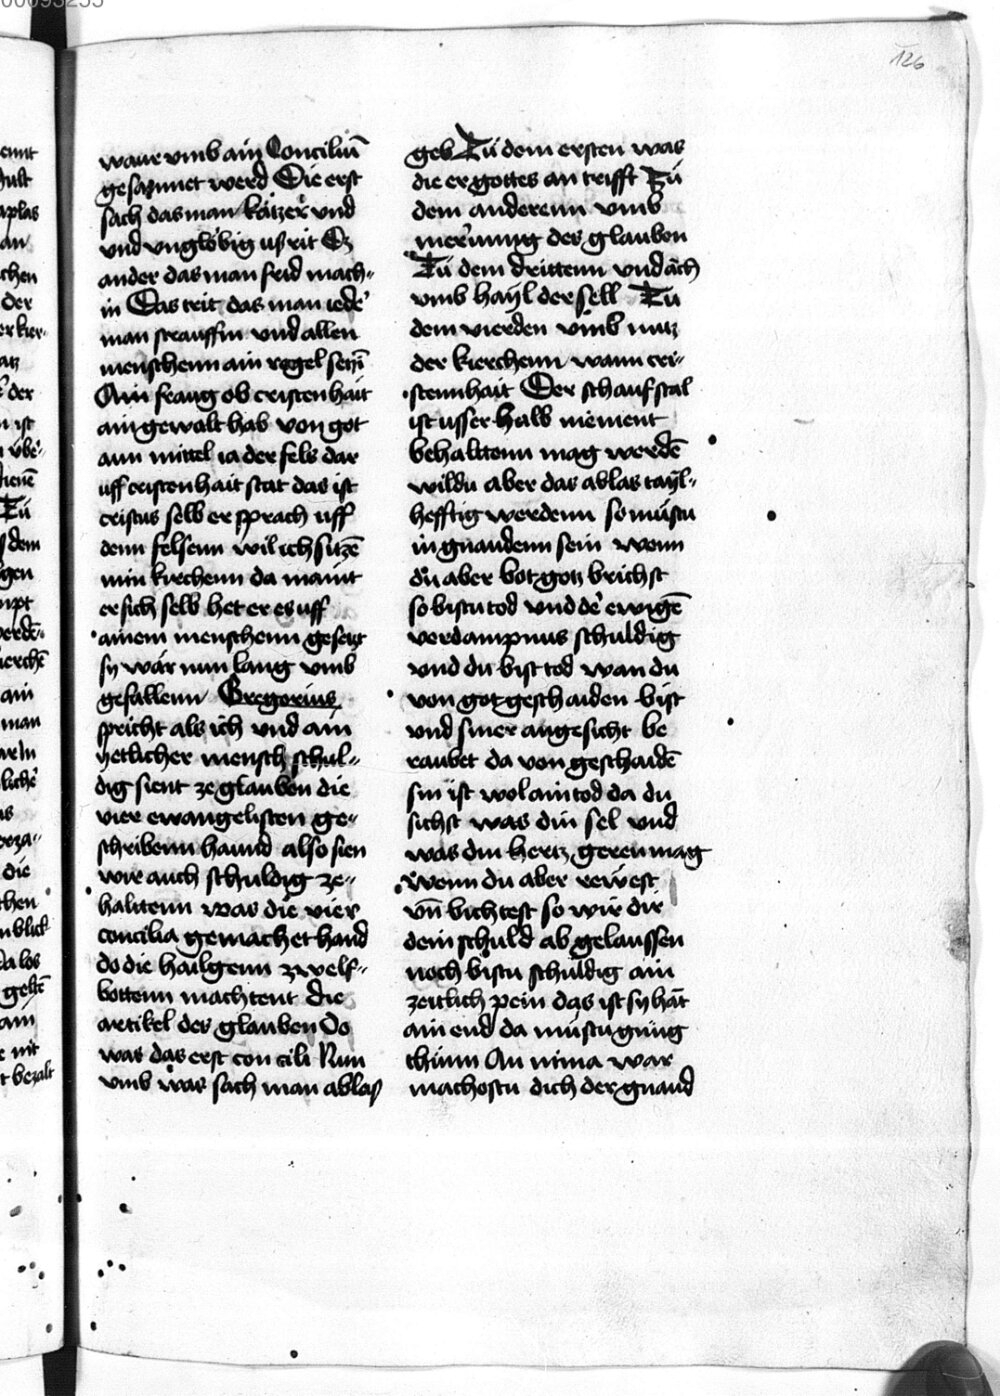 126
waur vmb ain Conciliū
gesamnet werd Die erst
sach das man kätzer vnd
vnd vnglöbig usrit Dz
ander das man frid mach-
in Das trit das man iede
man strauffin vnd allen
menschenn ain regel setzi
Ain fraug ob cristenhait
ain gewalt hab von got
ann mittel ia der fels dar
uff cristenhait stat das ist
cristus selb er sprach uff
denn felsenn wil ich sitzē
min kirchenn da maint
er sich selb het er es uff
ainem menschenn gesetzt
sy wär nun lang vmb
gefallenn Gregorius
spricht als ich vnd ain
yetlicher mensch schul-
dig sient ze glauben die
vier ewangelisten ge-
schribenn haund also sien
wir auch schuldig ze-
halttenn was die vier
concilia gemachet hand
do die hailgenn zwelf-
bottenn machtent die
artikel des glauben Do
was das erst concili Nun
vmb was sach man ablas
geb Zü dem ersten was
die er gottes an trifft Zü
dem anderenn vmb
merünng des glauben
Zü dem drittenn vnd äch
vmb hayl der sell Zü
dem vierden vmb nutz
der kierchenn wann cri-
stennhait Der schaufstal
ist usserhalb niement
behalttenn mag werdē
wildu aber das ablas tayl-
hefftig werdenn so müstu
in gnaudenn sein wenn
du aber bot gotz brichst
so bistu tod vnd de ewigē
verdampnus schuldig
vnd du bist tod wan du
von got geschaiden bist
vnd siner angesicht be
raubet da von geschaidē
sin ist wol ain tod da du
sichst was din sel vnd
was din hertz geren mag
wenn du aber rewest
vn̄ bichtest so wir dir
dein schuld ab gelaussen
noch bistu schuldig ain
zeitlich pein das ist sy hät
ain end da müstu gnüg
thünn An nima war
machostu dich der gnaud